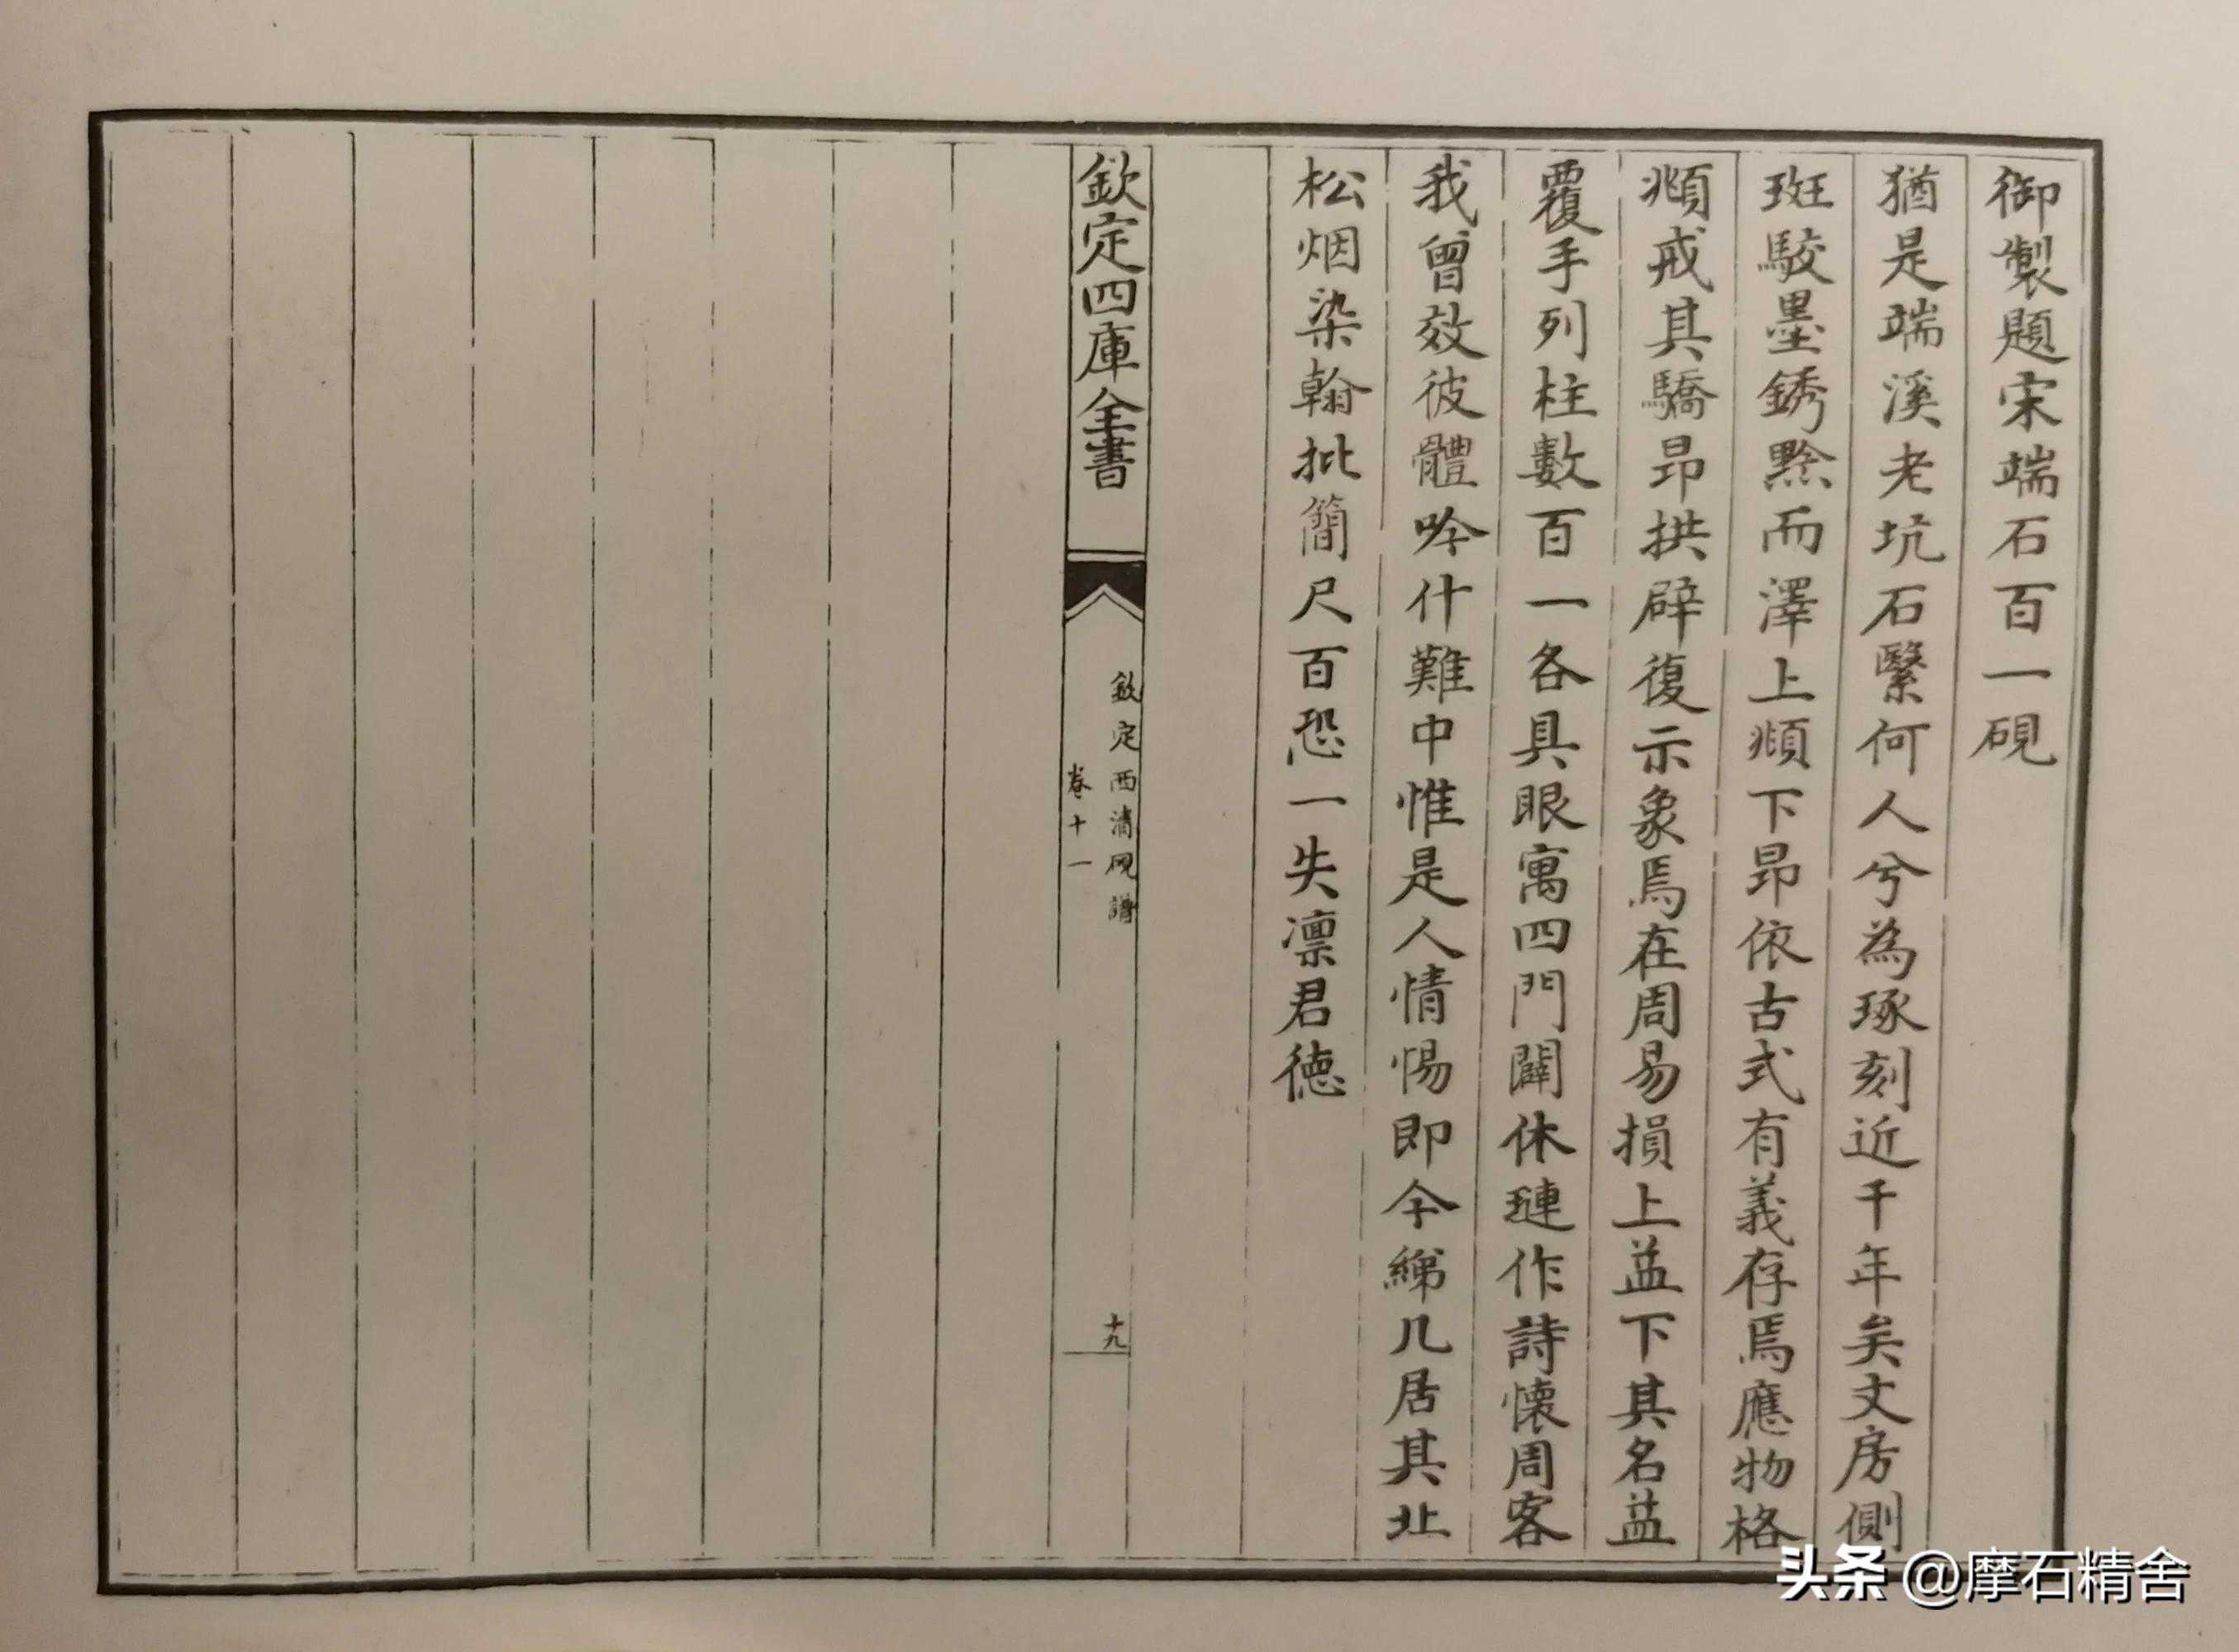 御製題宋端石百一硯
猶是端溪老坑石繄何人兮為琢刻近千年矣文房側
斑駮墨銹黯而澤上頫下昂依古式有義存焉應物格
頫戒其驕昂拱辟復示象焉在周易損上益下其名益
覆手列柱數百一各具眼寓四門闢休璉作詩懷周客
我曾效彼體吟什難中惟是人情惕即今綈几居其北
松烟染翰批簡尺百恐一失凛君德
欽定四庫全書
欽定西清硯譜
卷十一
十九
头条 @摩石精舍